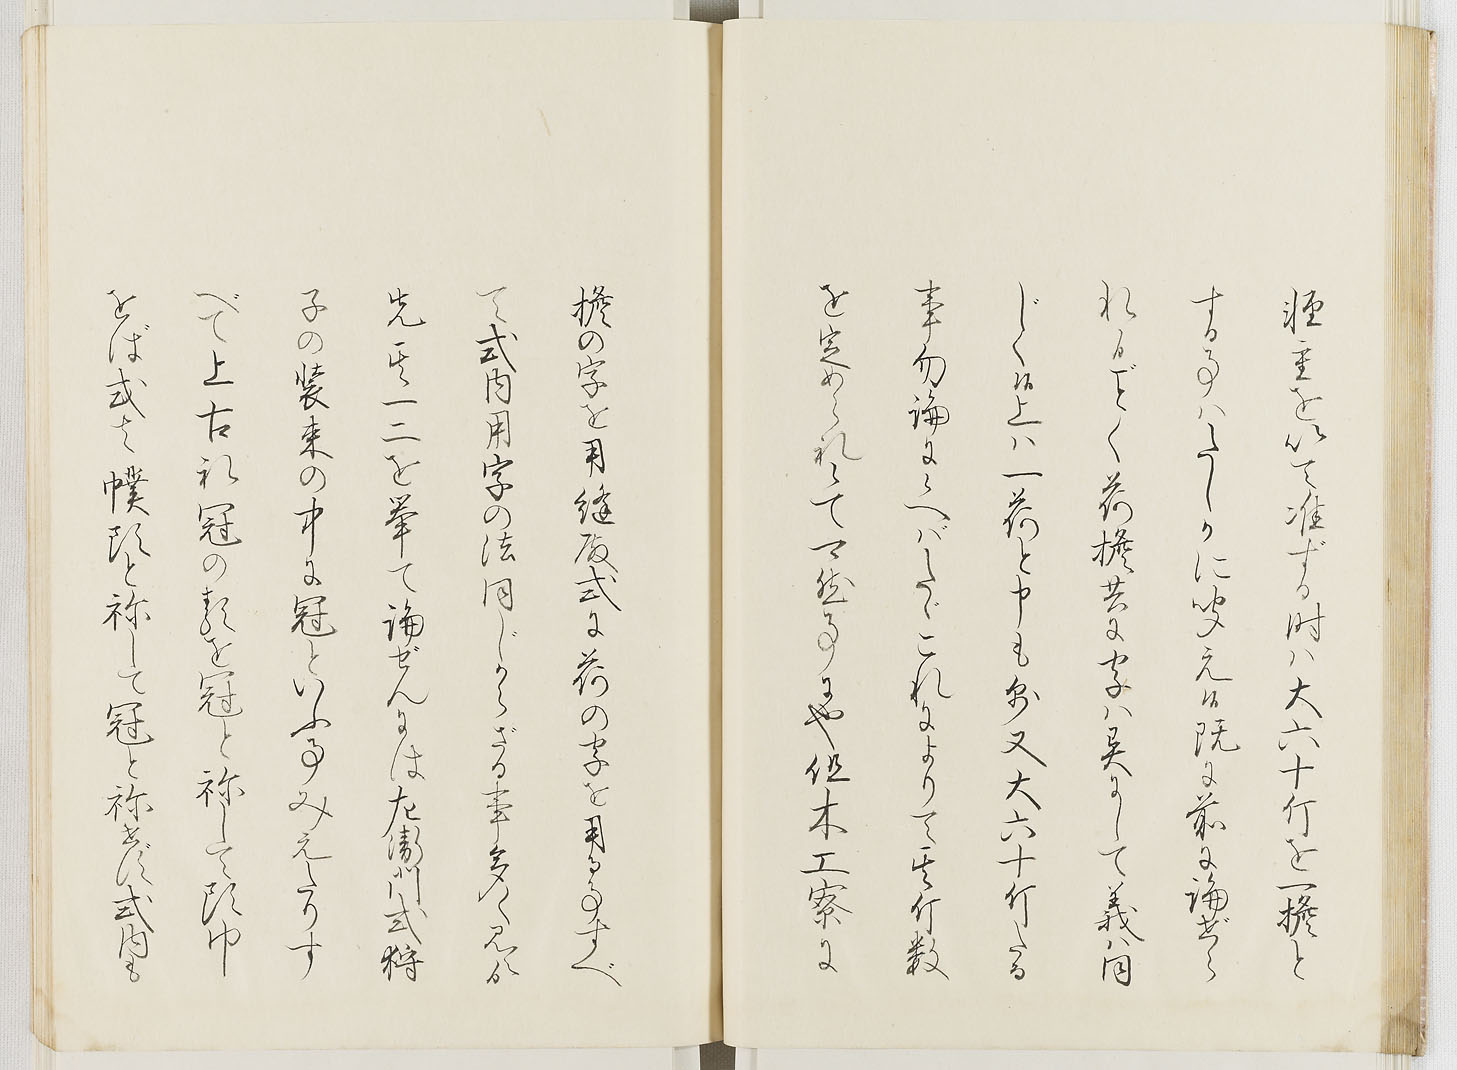 軽重を以て准ずる時ハ大六十斤を一擔と
する事ハたしかに聞え候既に前に論ぜら
れ候ごとく荷擔共に字ハ異にして義ハ同
じく候上ハ一荷と申も則又大六十斤たる
事勿論に候へバたゞこれによりて其斤数
を定められて可然事にや但木工寮に
擔の字を用縫殿式に荷の字を用る事すべ
て式内用字の法同じからざる事多く見え候
先其一二を挙て論ぜんには左衛門式狩
子の装束の中に冠といふ事みえたりす
べて上古礼冠の類を冠と称して頭巾
をば式には幞頭と称して冠と称せず式内も